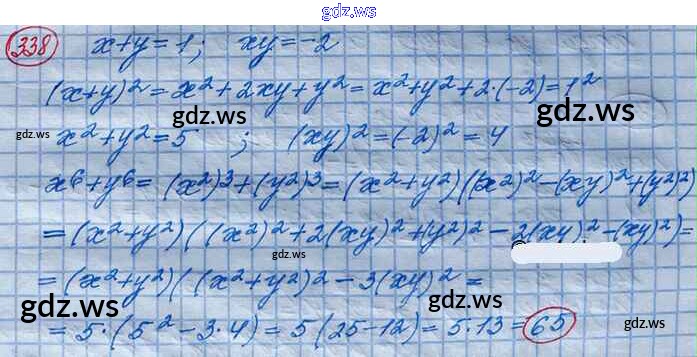 gdz.ws
338 x+y=1; xy=-2
(x+y)²=x²+2xy+y²=x²+y²+2·(-2)=1²
gdz.ws gdz.ws gdz.ws
x²+y²=5 ; (xy)²=(-2)²=4
x⁶+y⁶= (x²)³+(y²)³=(x²+y²)((x²)²-(xy)²+(y²)²)
=(x²+y²)((x²)²+2(xy)²+(y²)²-2(xy)²-(xy)²)=
gdz.ws
=(x²+y²)((x²+y²)²-3(xy)²=
gdz.ws gdz.ws
=5·(5²-3·4)=5(25-12)=5·13=65
gdz.ws